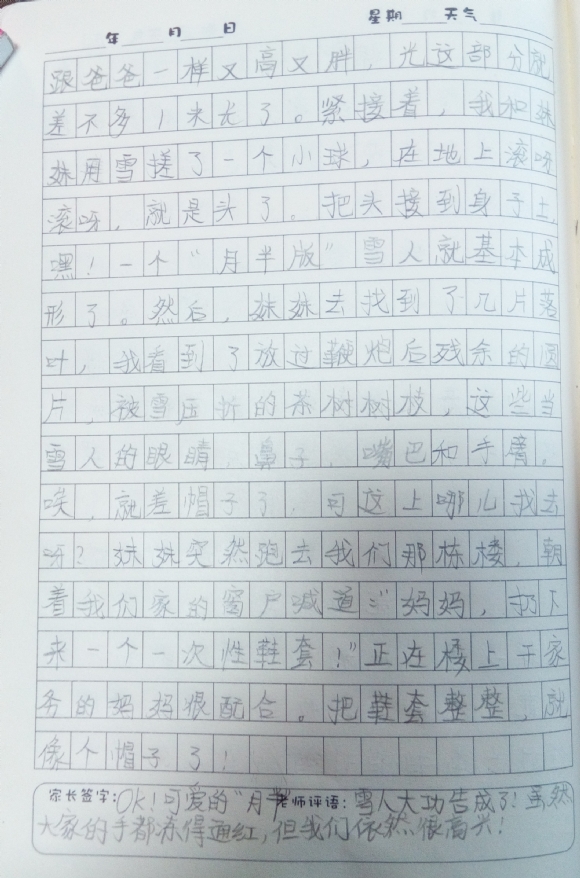 年 月 日 星期 天气
跟爸爸一样又高又胖，光这部分就
差不多1米长了。紧接着，我和妹
妹用雪搓了一个小球，在地上滚呀
滚呀，就是头了。把头接到身子上，
嘿！一个“月半版”雪人就基本成
形了。然后，妹妹去找到了几片落
叶，我看到了放过鞭炮后残余的圆
片，被雪压折的茶树树枝，这些当
雪人的眼睛，鼻子，嘴巴和手臂。
唉，就差帽子了，可这上哪儿找去
呀？妹妹突然跑去我们那栋楼，朝
着我们家的窗户喊道：“妈妈，扔下
来一个一次性鞋套！”正在楼上干家
务的妈妈很配合。把鞋套整整，就
像个帽子了！
家长签字：OK！可爱的“月半”老师评语：雪人大功告成了！虽然
大家的手都冻得通红，但我们依然很高兴！